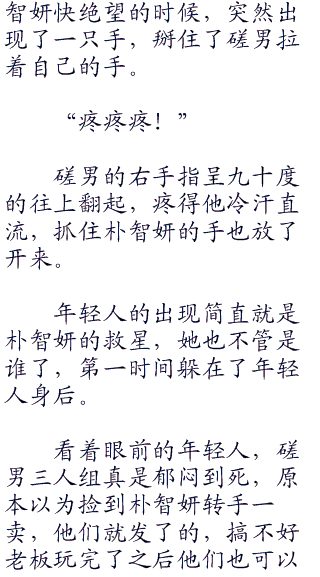 智妍快绝望的时候，突然出
现了一只手，掰住了磋男拉
着自己的手。
“疼疼疼！”
磋男的右手指呈九十度
的往上翻起，疼得他冷汗直
流，抓住朴智妍的手也放了
开来。
年轻人的出现简直就是
朴智妍的救星，她也不管是
谁了，第一时间躲在了年轻
人身后。
看着眼前的年轻人，磋
男三人组真是郁闷到死，原
本以为捡到朴智妍转手一
卖，他们就发了的，搞不好
老板玩完了之后他们也可以